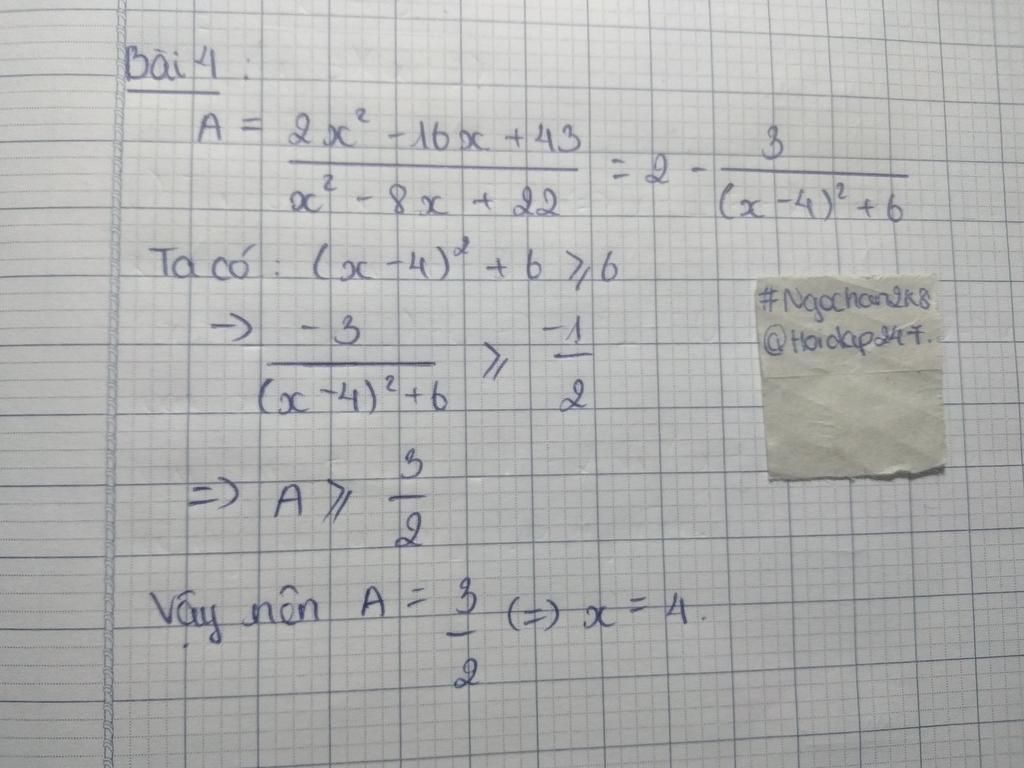 Bài 4 :
A = (2x² - 16x + 43)/(x² - 8x + 22) = 2 - 3/((x - 4)² + 6)
Ta có : (x - 4)² + 6 ⩾ 6
-> -3/((x - 4)² + 6) ⩾ -1/2
=> A ⩾ 3/2
Vậy nên A = 3/2 (=) x = 4.
#Ngochan2k8
@Hoidap247.